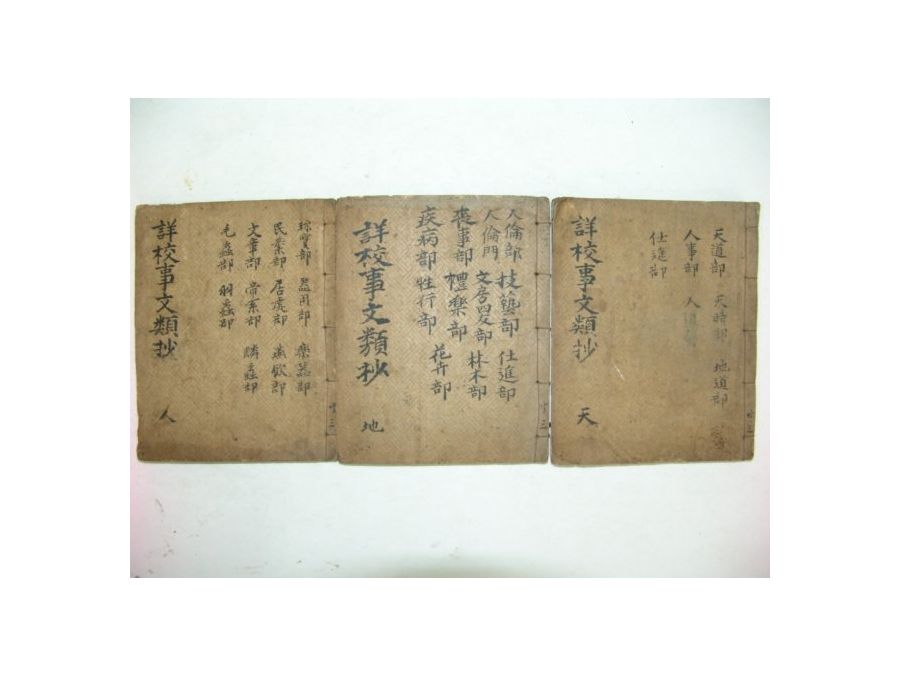 天道部 天時部 地道部
人事部 人
仕進部
詳校事文類抄 天
人倫部 技藝部 仕進部
人倫門 文房四友部 林木部
喪事部 禮樂部 花卉部
疾病部 性行部
詳校事文類抄 地
珍寶部 器用部 樂器部
民業部 居處部 燕飮部
文章部 帝系部 鱗蟲部
毛蟲部 羽蟲部
詳校事文類抄 人